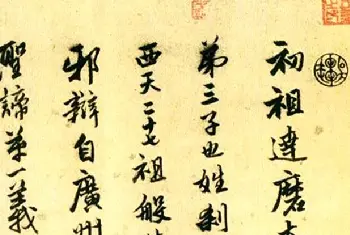 初祖達磨大
弟三子也姓剎
西天二十七祖般
邪辯自廣州
聖諦第一義